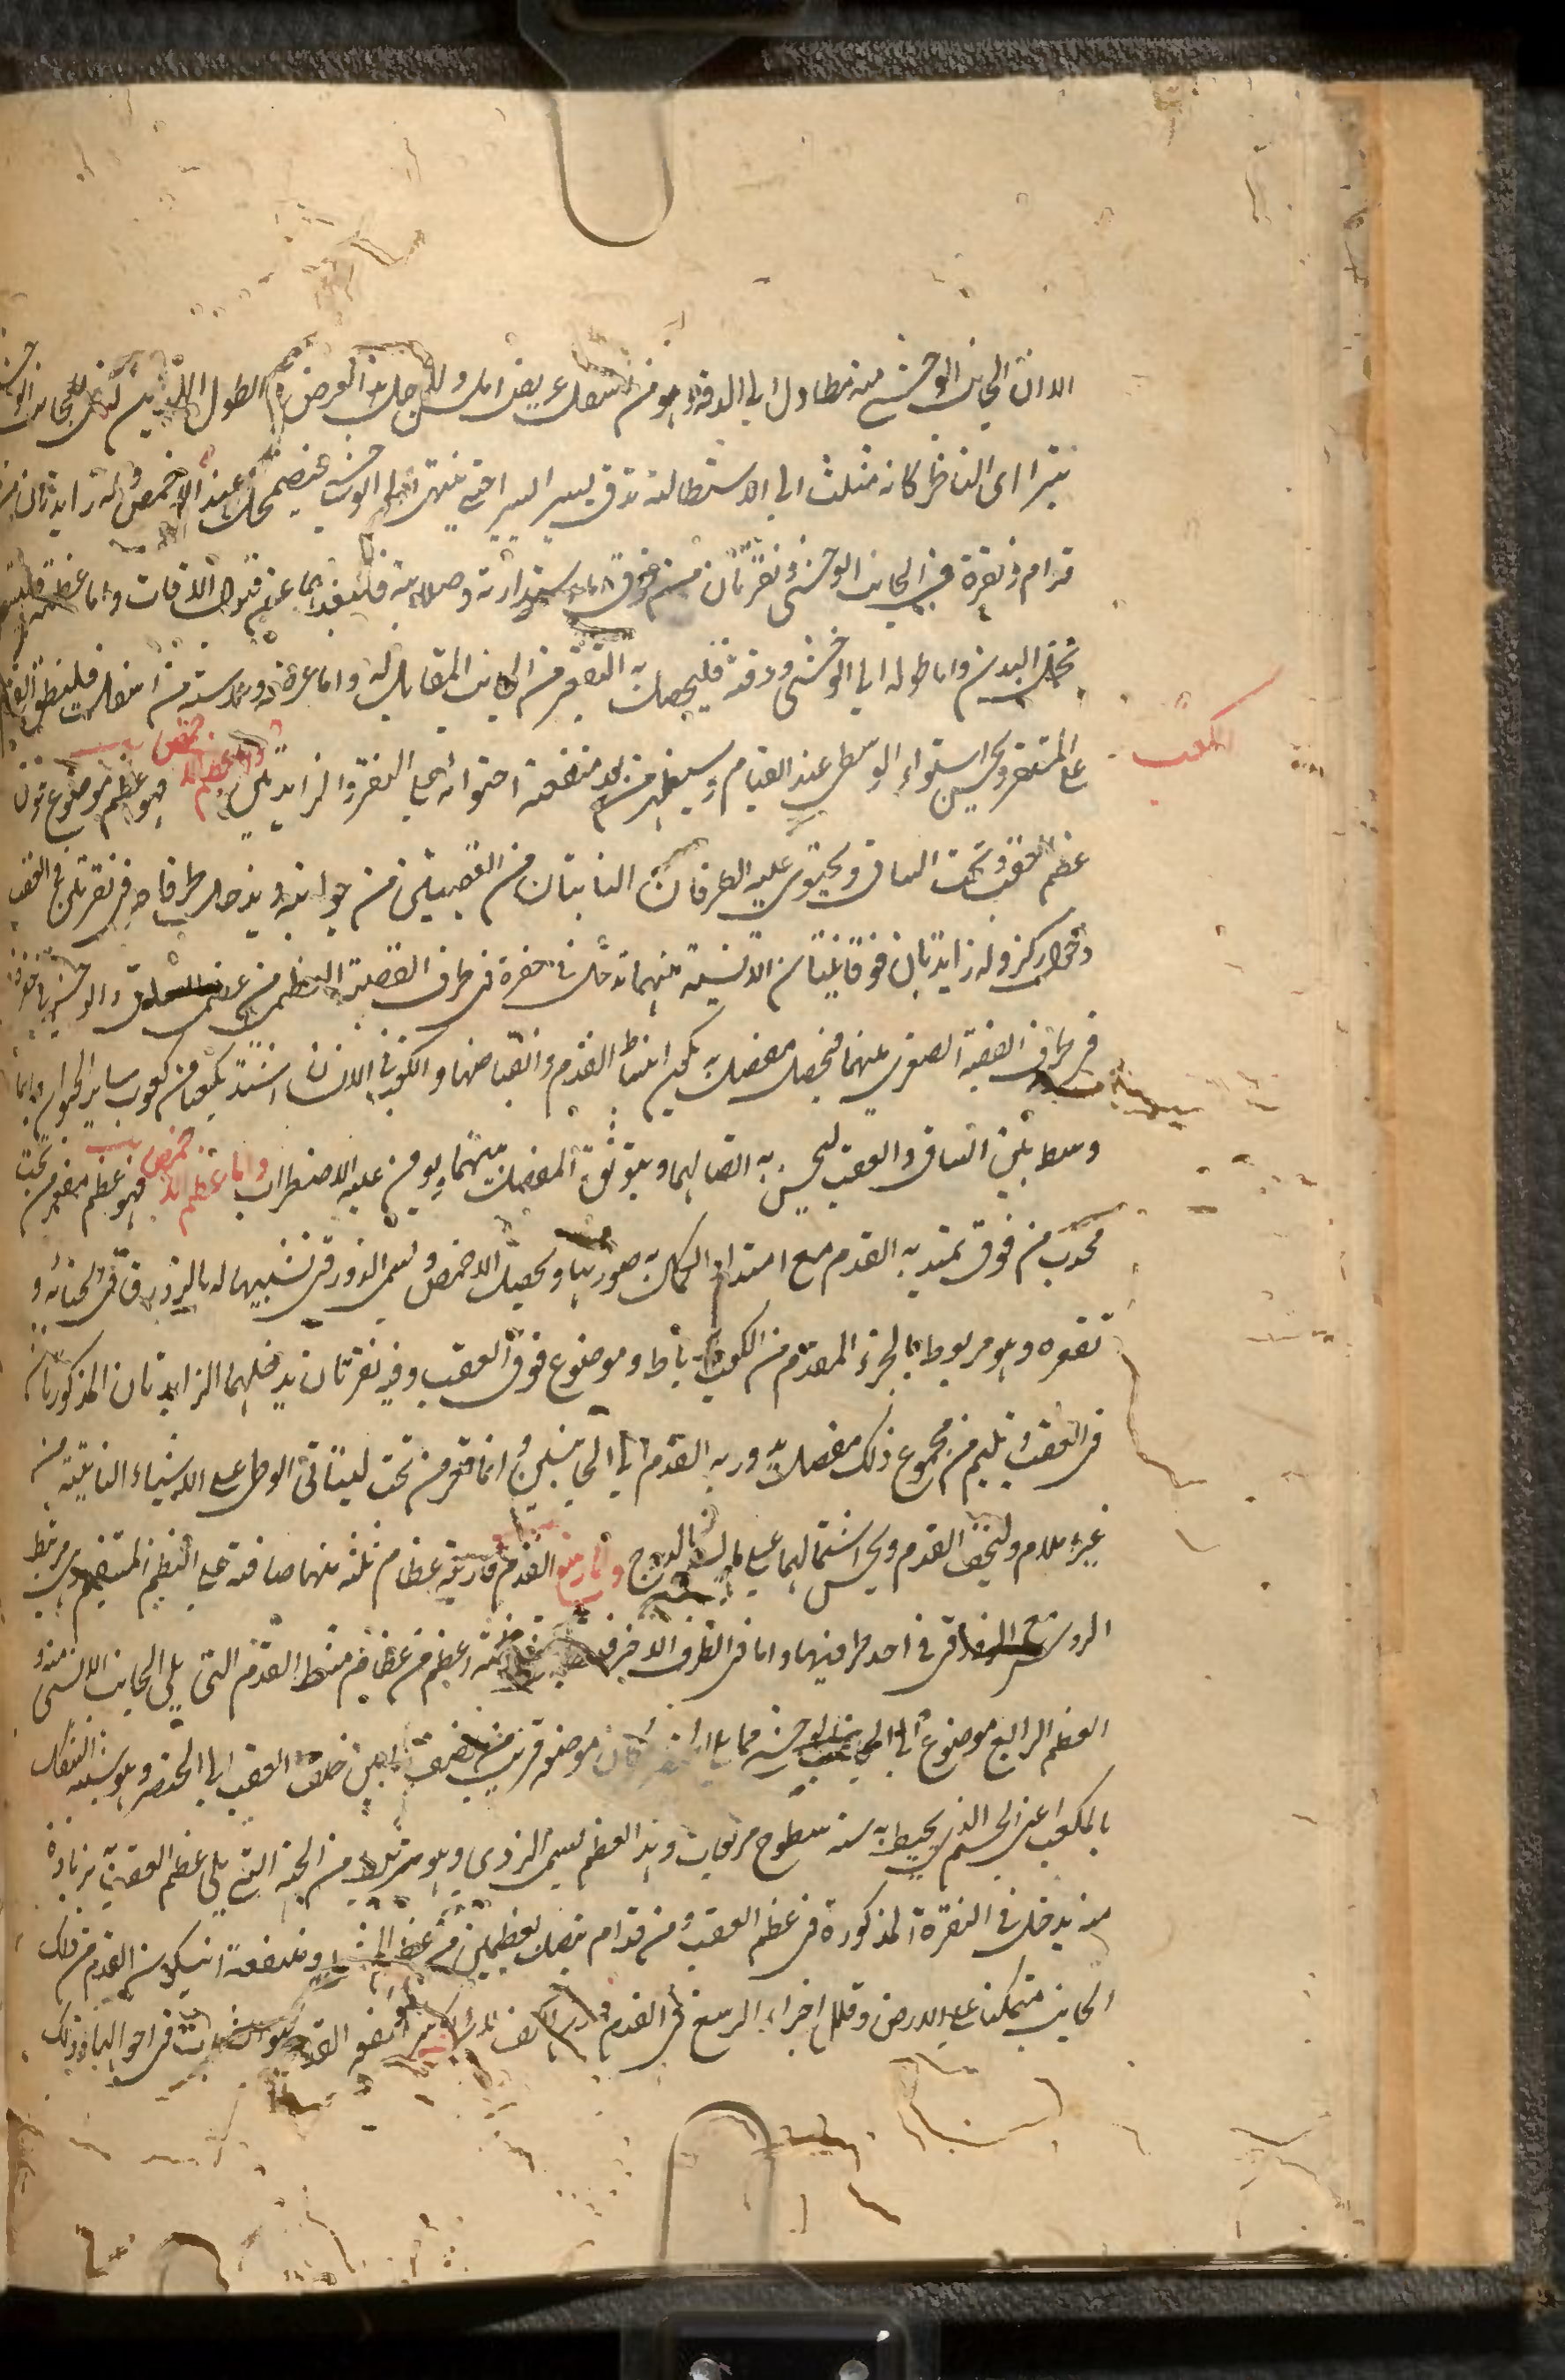 الا ان الجانب الوحشي منه متطاول الى الدقة وهو من اسفل عريض املس ولاجل هذا العرض و الطول اللذين للجانب الوحشي
يتراای الناظر كانه مثلث الى الاستطالة تدق يسيرا يسيرا حتى ينتهى الى الوحشي فيضمحل عند الاخمص وله زايدتان من
قدام ونقرة في الجانب الوحشي ونقرتان من فوق اما استدارته وصلابته فليبعد بهما عن قبول الآفات واما عظمه فليستقل
بحمل البدن واما طوله الى الوحشي ودقته فليحصل به التقعير من الجانب المقابل له واما عرضه وملاسته من اسفل فلينطبق القدم
على المستقر ويحسن استواء الوطى عند القيام وسيظهر من بعد منفعة احتوائه على النقر والزايدتين واما عظم الكعب فهو عظم موضوع فوق
الكعب
عظم العقب وتحت الساق ويحتوى عليه الطرفان الناتيان من القصبتين من جوانبه ويدخل طرفاه في نقرتين في العقب
دخول ركز وله زايدتان فوقانيتان الانسية منهما تدخل في حفرة في طرف القصبة العظمى من عظمى الساق والوحشية في حفرة
في طرف القصبة الصغرى منهما فيحصل مفصل به يكون انبساط القدم وانقباضها والكعوب في الانسان اشد تكعيبا من كعوب ساير الحيوان وانما
وسط بين الساق والعقب ليحسن به اتصالهما ويتوثق المفصل بينهما ويومن عليه الاضطراب واما عظم الاخمص فهو عظم مقعر من تحت
محدب من فوق يمتد به القدم مع امتداد الحمال به صوريا ويحصل الاخمص ويسمى الزورقي تشبيها له بالزورق في انحنائه و
تقعره وهو مربوط بالجزء المقدم من الكعب برباط وموضوع فوق العقب وفيه نقرتان يدخلهما الزايدتان المذكورتان
في العقب ويلتيم من مجموع ذلك مفصل يدور به القدم الى الجانبين وانما قعر من تحت ليتاتى الوطى على الاشياء الناتية من
غير ايلام وليخف القدم ويحسن اشتمالها على ما يشبه الدرج واما رسغ القدم فاربعة عظام ثلثة منها مصافة على النظم المستقيم وهى مرتبط
الروس بالزورقي في احد طرفيها واما في الطرف الاخر فيتصل بثلثة اعظم من عظام مشط القدم التى يلى الجانب الانسى منه و
العظم الرابع موضوع الى الجانب الوحشي مما يلى الخنصر كان موضعه قريب من نصف ما بين خلف العقب الى الخنصر وهو شبيه الشكل
بالمكعب اعنى الجسم الذى يحيط به ستة سطوح مربعات وهذا العظم يسمى النردى وهو مرتبط من الجهة التى يلى عظم العقب به بزيادة
منه يدخل في النقرة المذكورة في عظم العقب ومن قدام يتصل بعظمين من عظام المشط ومنفعته ان يكون القدم من ذلك
الجانب متمكنا على الارض وقلل اجزاء الرسغ في القدم